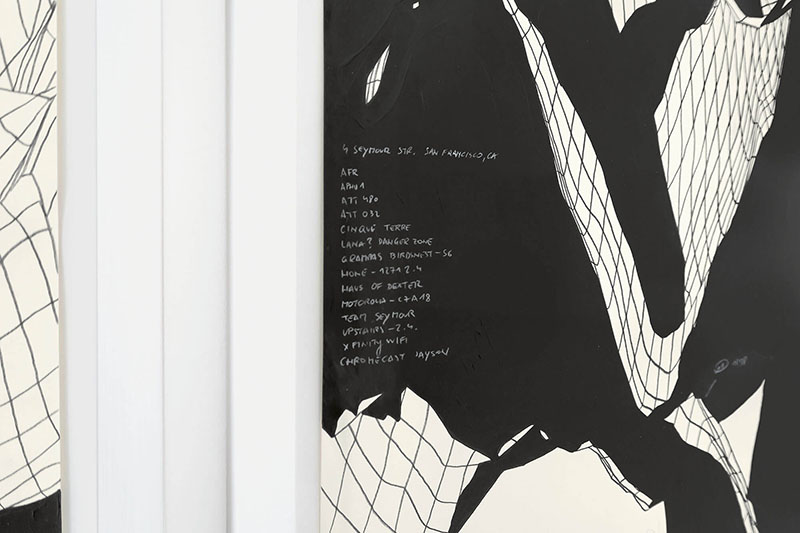 4 SEYMOUR STR. SAN FRANCISCO, CA
AFR
ATT 480
ATT 032
CINQUE TERRE
LANA? DANGER ZONE
GRAMPAS BIRDSNEST-5G
HOME-1271 2.4
HAUS OF DEXTER
MOTOROLA-C7A18
TEAM SEYMOUR
UPSTAIRS-2.4.
XFINITY WIFI
CHROMECAST JAYSON